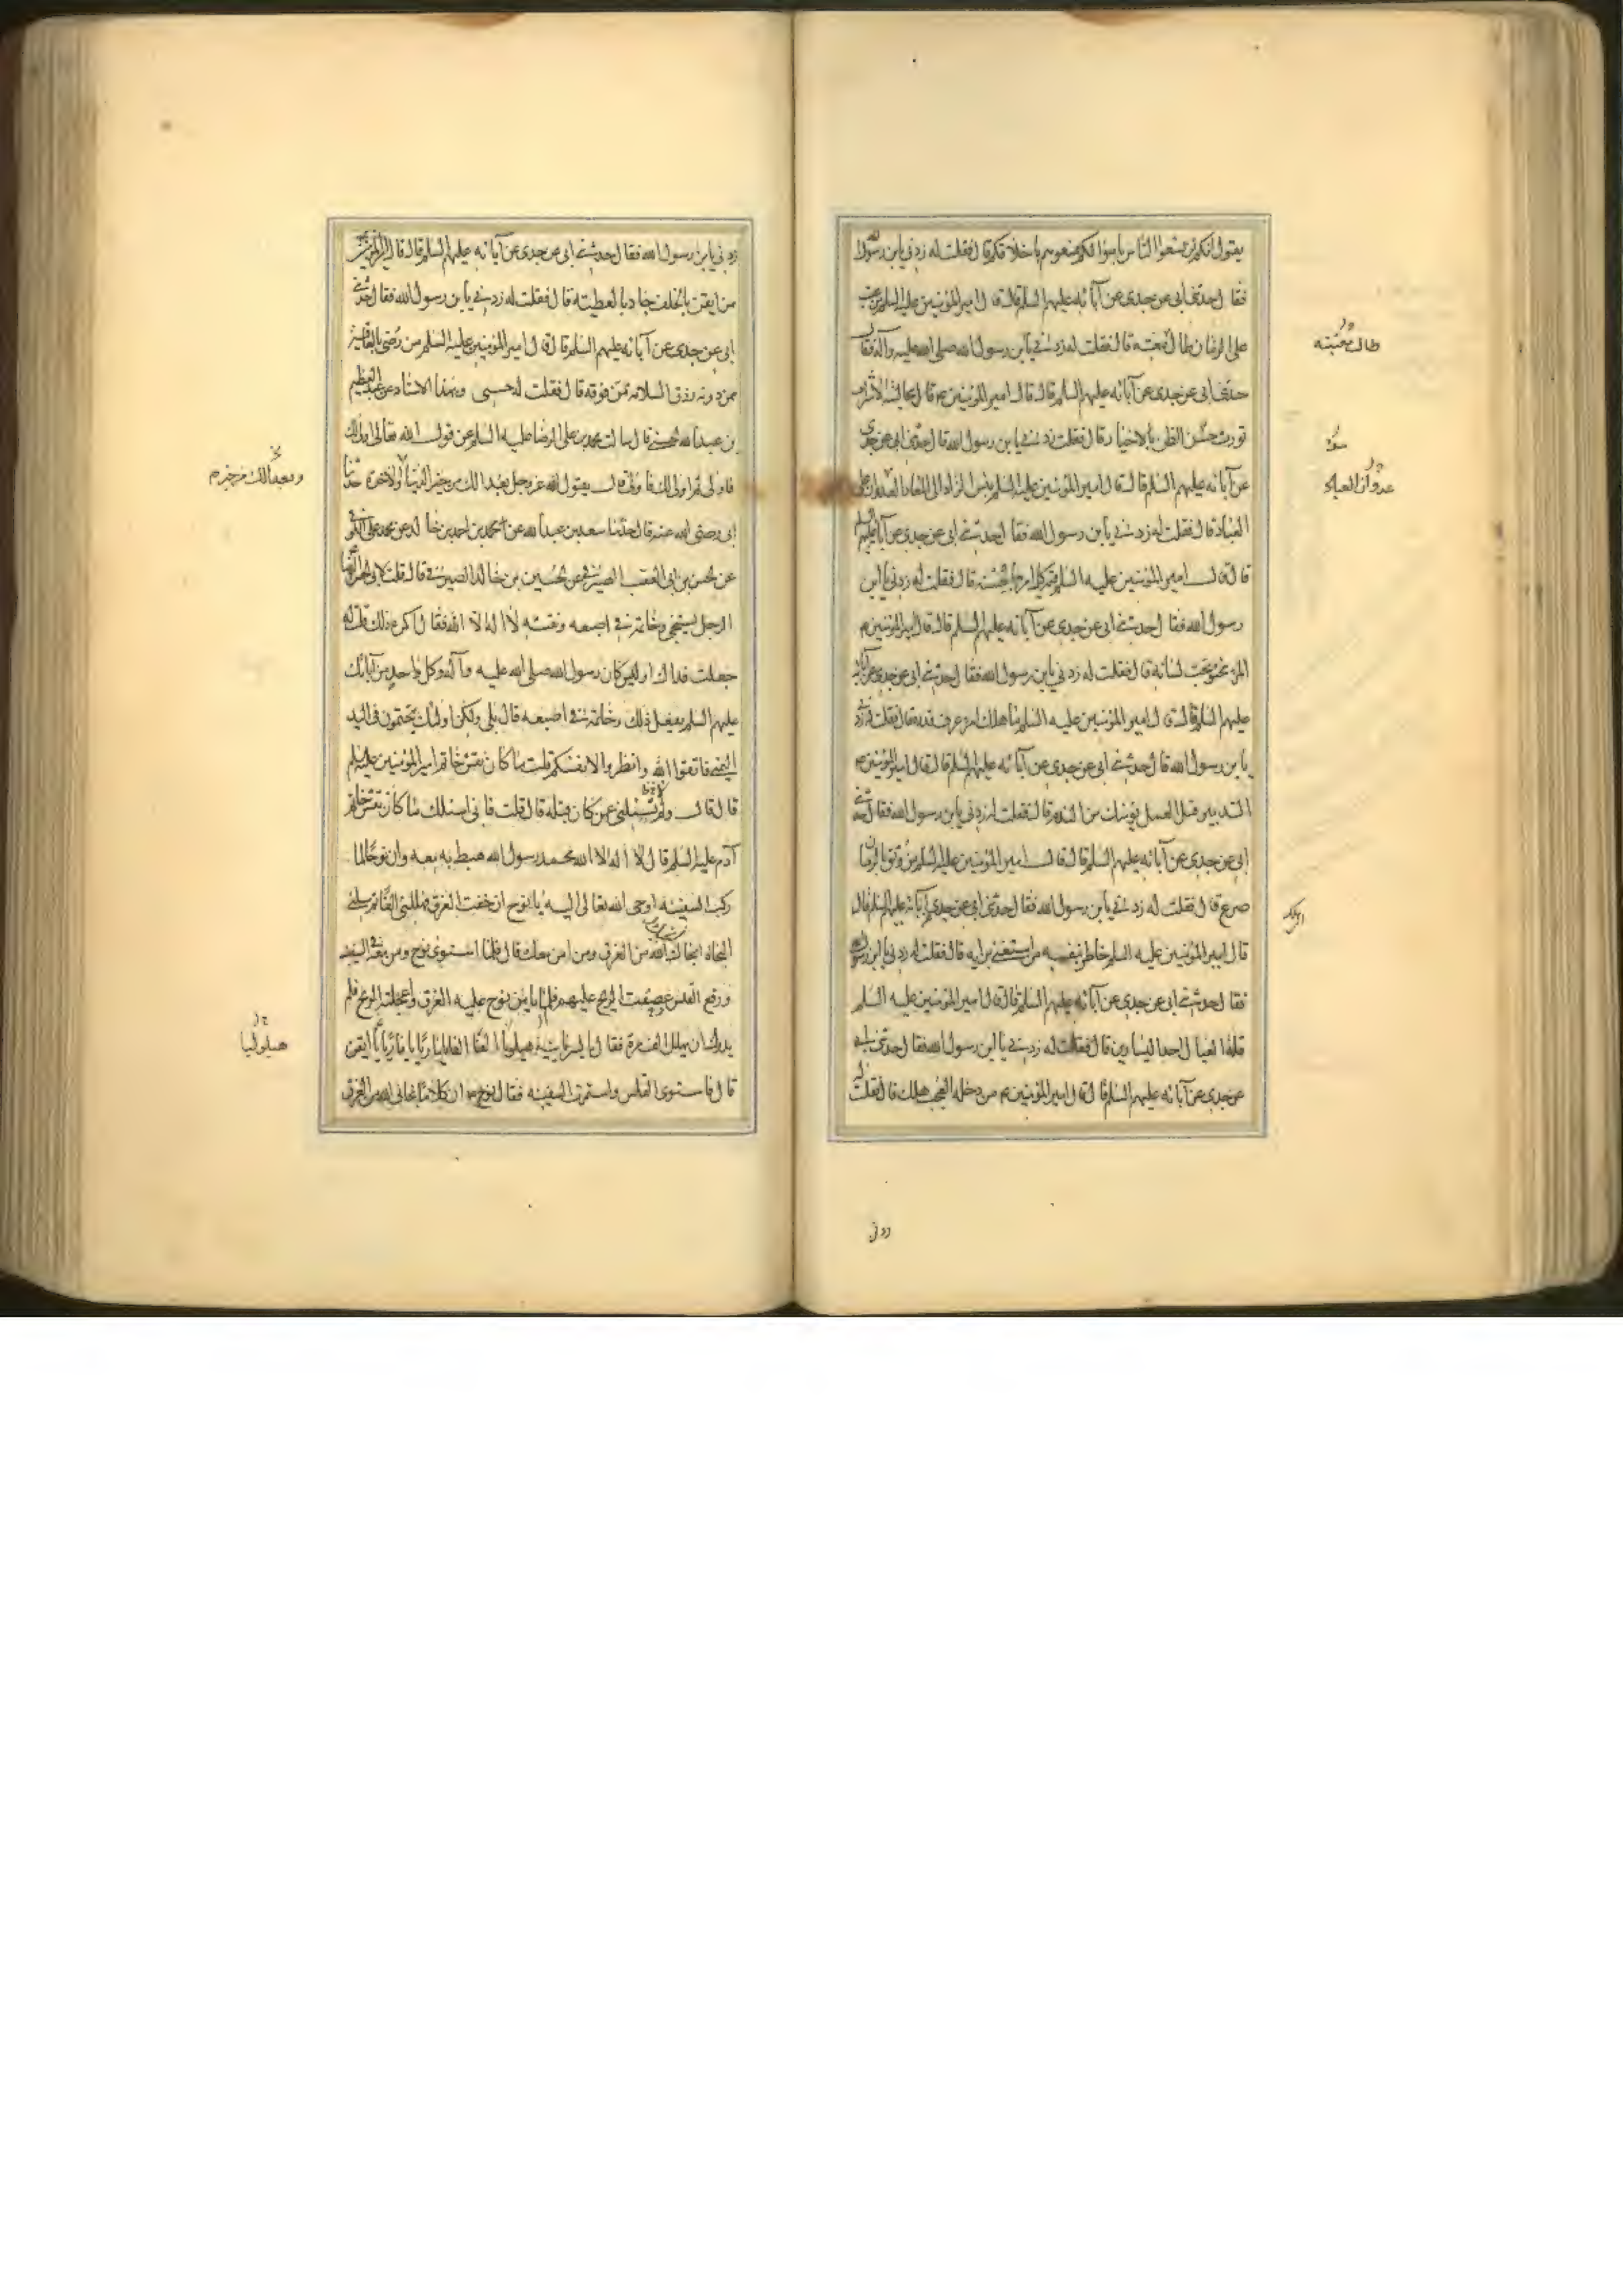 يقول انكم لن تسعوا الناس باموالكم فسعوهم باخلاقكم قال فقلت له زدني يابن رسول الله
فقال حدثني ابي عن جدي عن آبائه عليهم السلم قال قال امير المؤمنين عليه السلم من عتب
على الزمان طالت معتبته قال فقلت له زدني يابن رسول الله صلى الله عليه وآله فقال
حدثني ابي عن جدي عن آبائه عليهم السلم قال قال امير المؤمنين ع مجالسة الاشرار
تورث حسن الظن بالاخيار قال فقلت زدني يابن رسول الله قال حدثني ابي عن جدي
عن آبائه عليهم السلم قال قال امير المؤمنين عليه السلم بئس الزاد الى المعاد العدوان على
العباد قال فقلت له زدني يابن رسول الله فقال حدثني ابي عن جدي عن آبائه عليهم السلم
قال قال امير المؤمنين عليه السلم قيمة كل امرئ ما يحسنه قال فقلت له زدني يابن
رسول الله فقال حدثني ابي عن جدي عن آبائه عليهم السلم قال قال امير المؤمنين ع
المرء مخبو تحت لسانه قال فقلت له زدني يابن رسول الله فقال حدثني ابي عن جدي عن آبائه
عليهم السلم قال قال امير المؤمنين عليه السلم ما هلك امرء عرف قدره قال فقلت له زدني
يابن رسول الله قال حدثني ابي عن جدي عن آبائه عليهم السلم قال قال امير المؤمنين ع
التدبير قبل العمل يؤمنك من الندم قال فقلت له زدني يابن رسول الله فقال حدثني
ابي عن جدي عن آبائه عليهم السلم قال قال امير المؤمنين عليه السلم من وثق بالزمان
صرع قال فقلت له زدني يابن رسول الله فقال حدثني ابي عن جدي عن آبائه عليهم السلم قال
قال امير المؤمنين عليه السلم خاطر بنفسه من استغنى برايه قال فقلت له زدني يابن رسول الله
فقال حدثني ابي عن جدي عن آبائه عليهم السلم قال قال امير المؤمنين عليه السلم
قلة العيال احد اليسارين قال فقلت له زدني يابن رسول الله فقال حدثني ابي
عن جدي عن آبائه عليهم السلم قال قال امير المؤمنين ع من دخله العجب هلك قال فقلت له
طالت معتبته
سوء
عدوان العباد
زدني
زدني يابن رسول الله فقال حدثني ابي عن جدي عن آبائه عليهم السلم قال قال امير المؤمنين
من ايقن بالخلف جاد بالعطية قال فقلت له زدني يابن رسول الله فقال حدثني
ابي عن جدي عن آبائه عليهم السلم قال قال امير المؤمنين عليه السلم من رضي بالعافية
ممن دونه رزق السلامة ممن فوقه قال فقلت له حسبي وبهذا الاسناد عن عبد العظيم
بن عبد الله الحسني قال سالت محمد بن علي الرضا عليه السلم عن قول الله تعالى اولى لك
فاولى ثم اولى لك فاولى قال يقول الله عز وجل بعدا لك من خير الدنيا والآخرة حدثنا
ابي رضي الله عنه قال حدثنا سعد بن عبد الله عن احمد بن محمد بن خالد عن محمد بن علي الكوفي
عن الحسن بن ابي العقب الصيرفي عن الحسين بن خالد الصيرفي قال قلت لابي الحسن الرضا
الرجل يستنجي وخاتمه في اصبعه ونقشه لا اله الا الله فقال اكره ذلك قلت له
جعلت فداك اوليس كان رسول الله صلى الله عليه وآله وكل واحد من آبائك
عليهم السلم يفعل ذلك وخاتمه في اصبعه قال بلى ولكن اولئك يتختمون في اليد
اليمنى فاتقوا الله وانظروا لانفسكم قلت ما كان نقش خاتم امير المؤمنين عليه السلم
قال قال ولم لا تسئلني عمن كان قبله قال قلت فاني اسئلك ما كان نقش خاتم
آدم عليه السلم قال لا اله الا الله محمد رسول الله هبط به معه وان نوحا لما
ركب السفينة اوحى الله تعالى اليه يا نوح ان خفت الغرق فهللني الفا ثم سلني
النجاة انجك من الغرق ومن آمن معك قال فلما استوى نوح ومن معه في السفينة
ورفع القلس عصفت الريح عليهم فلم يامن نوح عليه الغرق واعجلته الريح فلم
يدرك ان يهلل الف مرة فقال بالسريانية هيلوليا الفا الفا يا ماريا يا ماريا ايقن
قال فاستوى القلس واستمرت السفينة فقال نوح ع ان كلاما نجاني الله من الغرق
وبعدا لك من خير م
هيلوليا